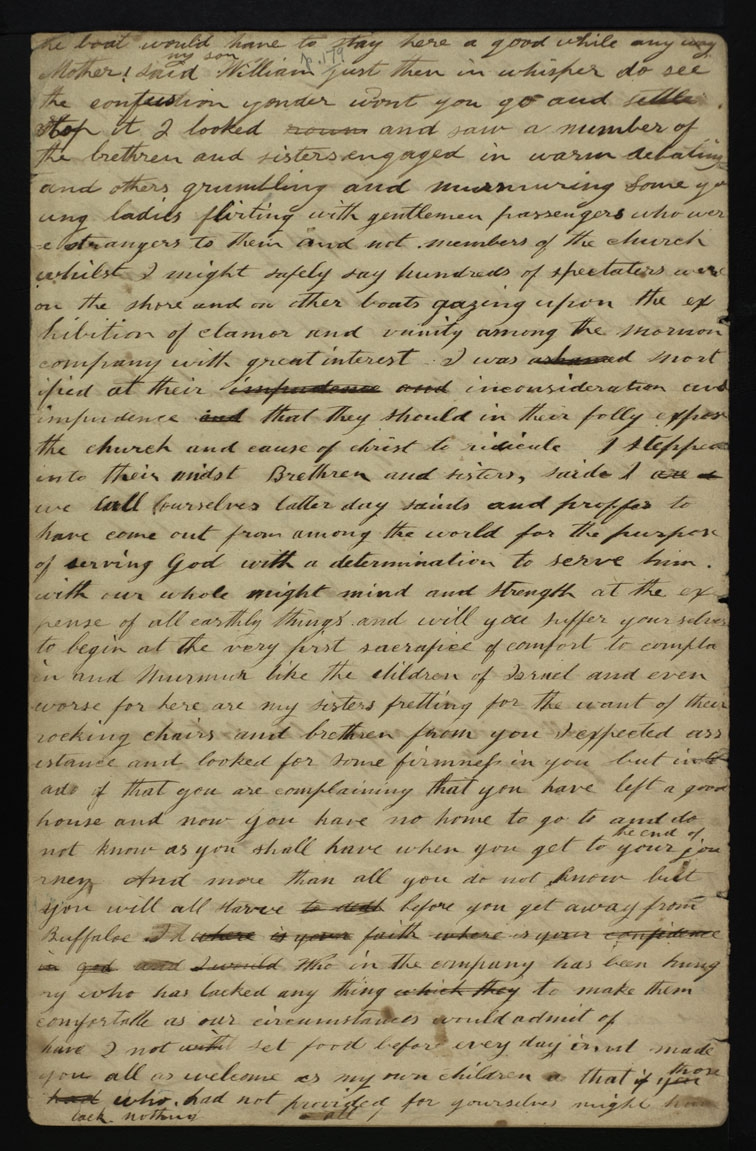 the boat would have to stay here a good while any way
my son p. 179
Mother! said William just then in whisper do see
the confusion yonder wont you go and settle
stop it I looked roun and saw a number of
the brethren and sisters engaged in warm debating
and others grumbling and murmuring Some yo
ung ladies flirting with gentlemen passengers who wer
e strangers to them and not members of the church
whilst I might safely say hundreds of spectators were
on the shore and on other boats gazing upon the ex
hibition of clamor and vanity among the mormon
company with great interest I was ashamed mort
ified at their impudence and inconsideration and
impudence and that they should in their folly expose
the church and cause of christ to ridicule I stepped
into their midst Brethren and sisters, said I
we call ourselves latter day saints and proffes to
have come out from among the world for the purpose
of serving God with a determination to serve him.
with our whole might mind and strength at the ex
pense of all earthly things and will you suffer yourselves
to begin at the very first sacrafice of comfort to compla
in and Murmur like the children of Israel and even
worse for here are my sisters fretting for the want of their
rocking chairs and brethren from you I expected ass
istance and looked for some firmness in you but inste
ad of that you are complaining that you have left a good
house and now you have no home to go to and do
the end of
not know as you shall have when you get to your jou
rney And more than all you do not know but
you will all starve to death before you get away from
Buffaloe where is your faith where is your confidence
in god and I would Who in the company has been hung
ry who has lacked any thing which they to make them
comfortable as our circumstances would admit of
have I not with set food before every day and made
you all as welcome as my own children that if you
those
had who had not provided for yourselves might
lack nothing all